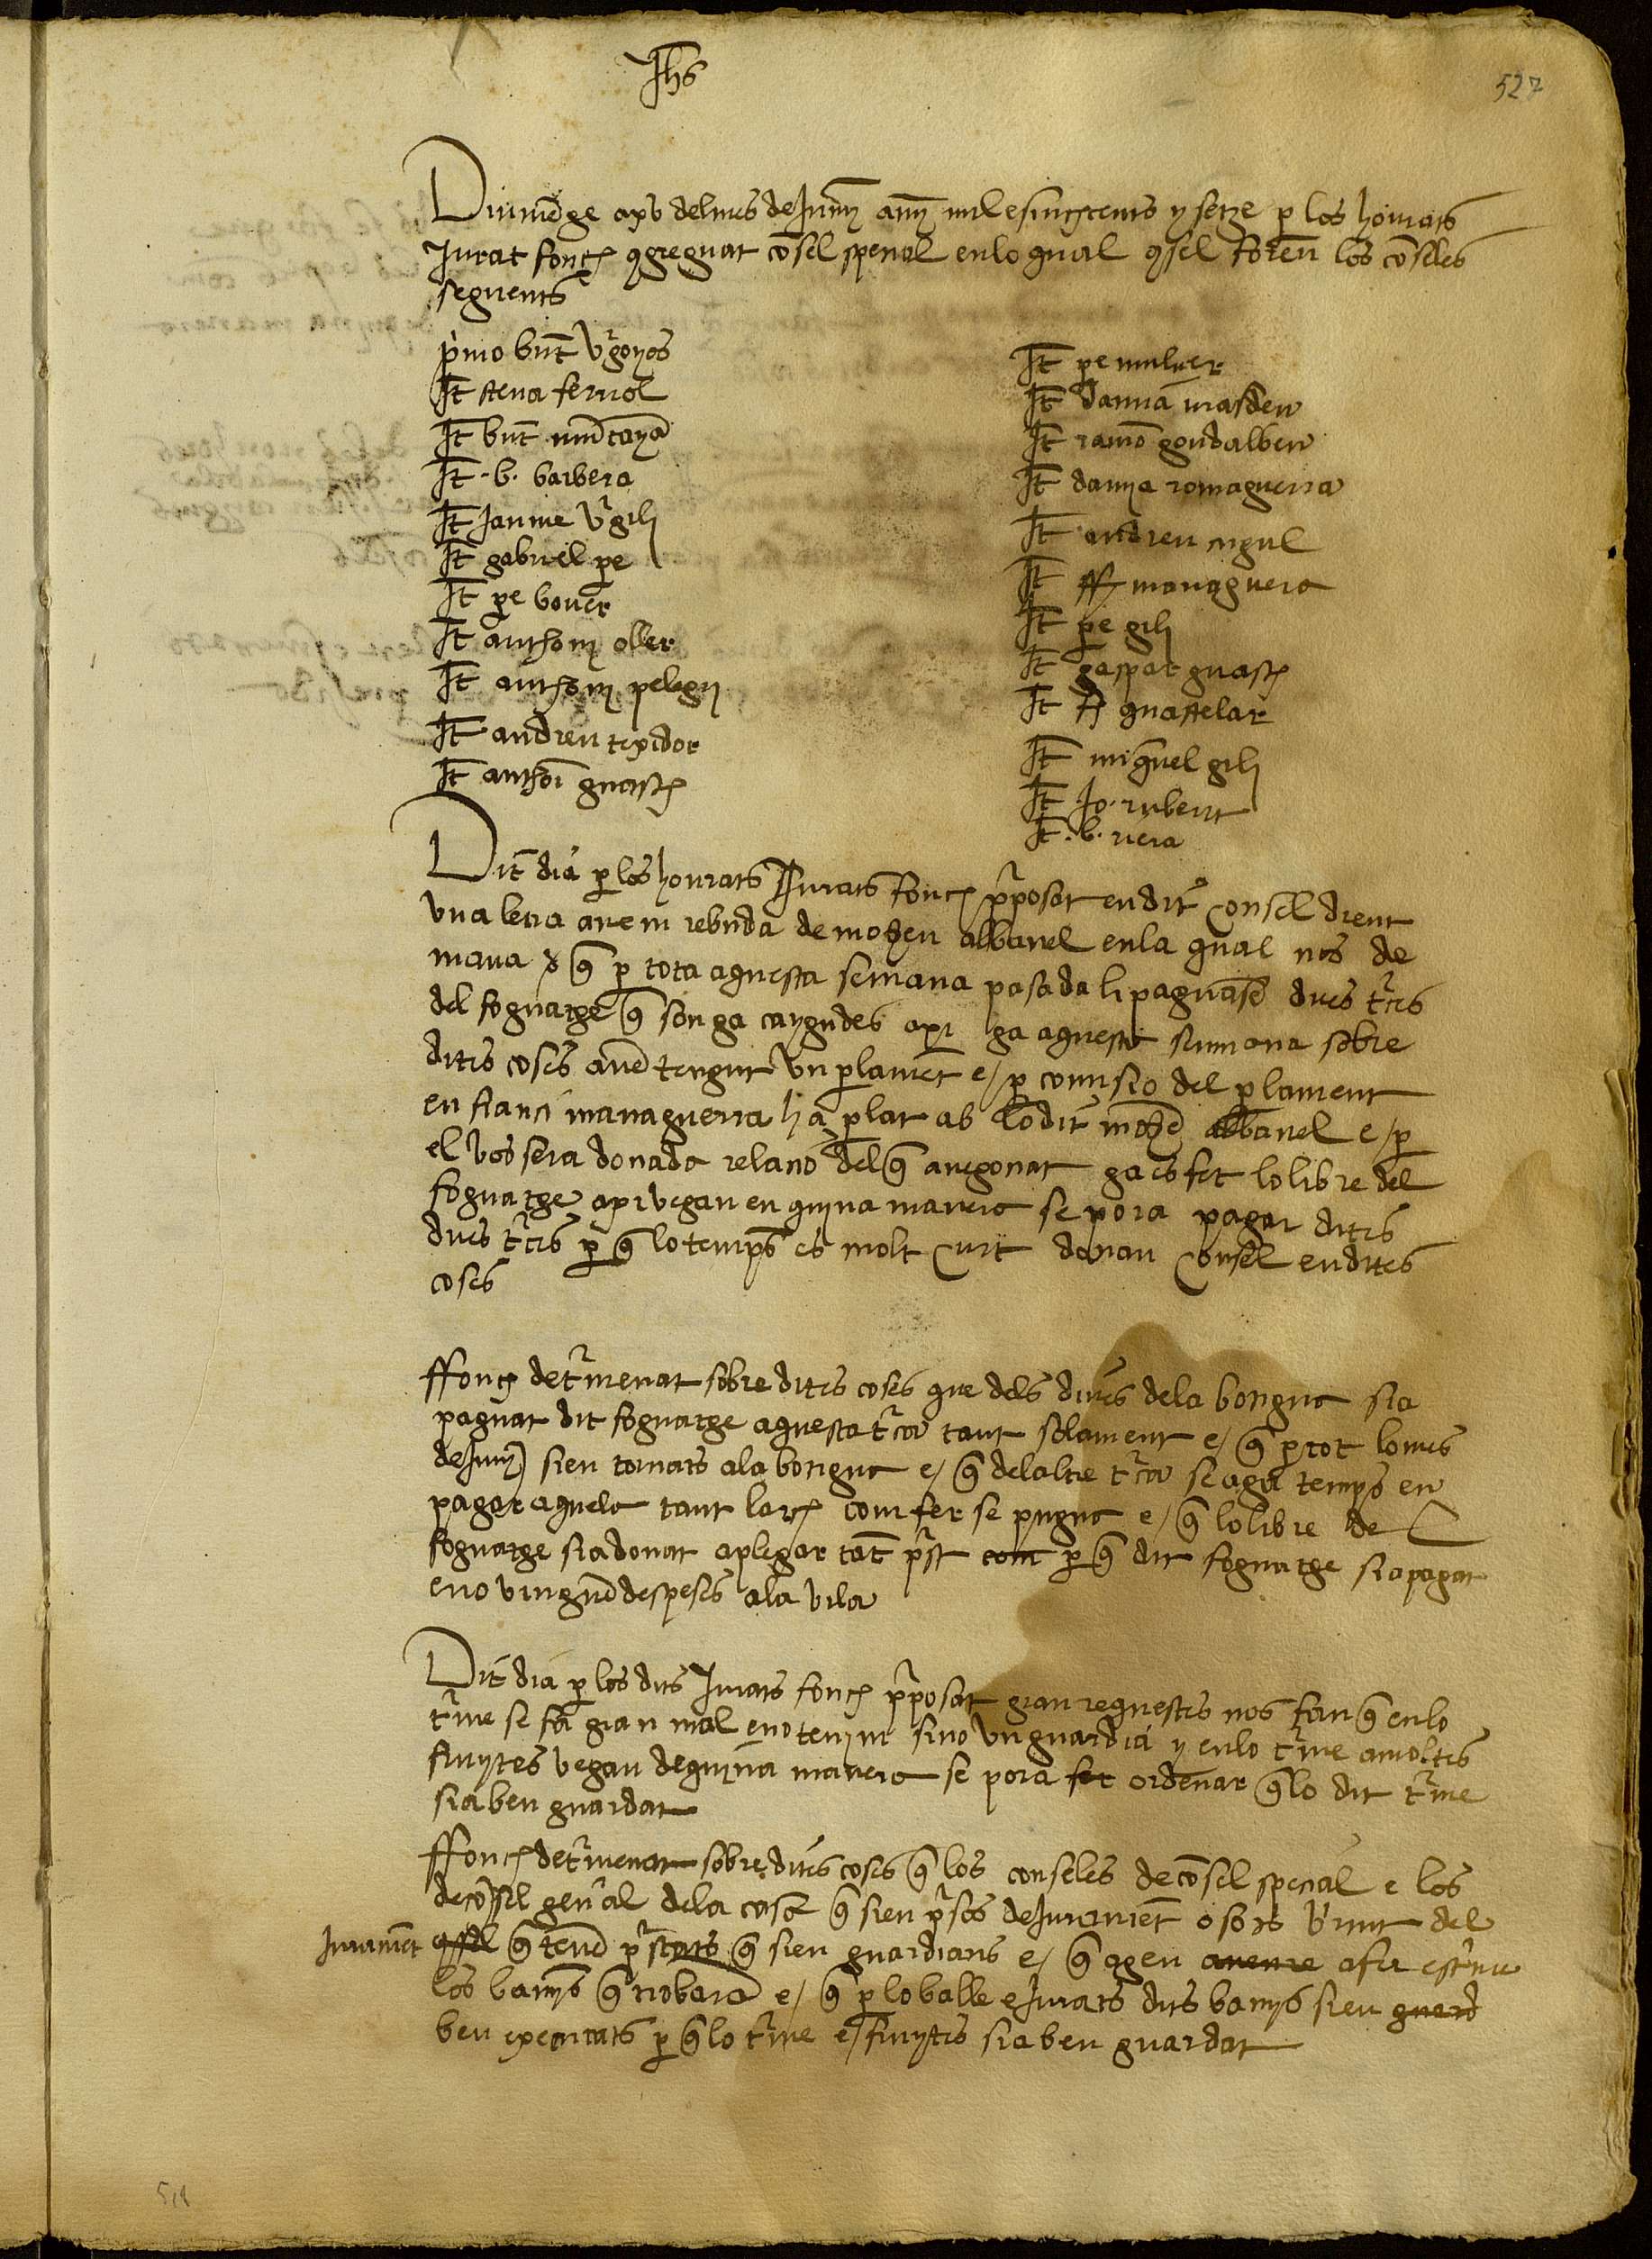 Jhs
527
Diumēge a xv del mes de Juny any mil e sinchcents y setze p los honrats
Jurat fonch ꝯgreguat cōsel spenal en lo qual ꝯsel foren los cōseles
seguents
pmo bnt vgonyos
It steva ferriol
It bnt mūtanyā
It .b. barbera
It Jaume vgili
It gabriel pe
It pe bover
It anthony oller
It anthony pelegri
It andreu texidor
It anthoni guasch
It pe muluer
It damiā masdeu
It ramō gondalbeu
It damia romaguerra
It andreu cugul
It ff managuera
It pe gili
It gaspar guasch
It A guastelar
It miquel gili
It Jo. rubert
It .b. riera
Dit dia p los honrats Jurats fonch pposat en dit consel dient
vna letra avem rebuda de mosen albanel en la qual nos de
mana q p tota aquesta semana pasada li paguasē dues tces
del foguatge q son ga caygudes axi ga aquesta semmana sobre
dites coses avē tengut vn plamēt e p comisio del plament
en franci managuerra ha plat ab lo dit mosē albanel e p
el vos sera donada relacio del q a negociat ga es fet lo libre del
foguatge axi vegau en quina manera se pora pagar dites
dues tces p q lo temps es molt curt donau consel en dites
coses
ffonch detmenat sobre dites coses que dels dines de la botigua sia
paguat dit foguatge aquesta tca tant solament e q p tot lo mes
de Juny sien tornats a la botigua e q de laltre tca se aga temps en
pagar aquela tant larch com fer se pugua e q lo libre de
foguatge sia donat a plegar tāt pst com p q dit foguatge sia pagat
e no vingē despeses a la vila
Dit dia p los dits Jurats fonch pposat gran requestes nos fan q en lo
tme se fa gran mal e no tenim sino vn guardia y en lo tme a moltes
finytes vegau de quina manera se pora fer ordenar q lo dit tme
sia ben guardat
ffonch detmenat sobre dites coses q los conseles de cōsel special e los
de cōsel genal de la casa q sien psos de Juramēt o sots virtut del
Juramēt ꝯsel q tenē pstats q sien guardians e q agen a fer
los banys q trobarā e q p lo balle e Jurats dits banys sien guard
ben executats p q lo tme e finytes sia ben guardat